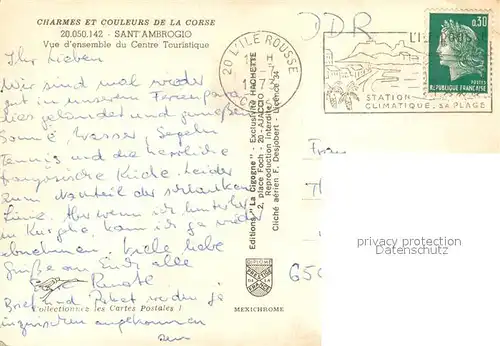 CHARMES ET COULEURS DE LA CORSE
20.050.142 - SANT'AMBROGIO
Vue d'ensemble du Centre Touristique
Ihr Lieben
Wir sind mal wieder
gut in unserem Ferienpara-
dies gelandet und genießen
Sonne, Wasser, Segeln,
Tennis und die herrliche
französische Küche. Leider
zum Nachteil der schlanken
Linie. Aber wenn ich hinterher
in Kurzehe, kann ich ja wieder
abnehmen. Viele liebe
Grüße an Euch alle
Renate
Brief und Paket werden ja
inzwischen angekommen
sein
Collectionnez les Cartes Postales !
MEXICHROME
Editions "La Cigogne" - Exclusivité HACHETTE
2, place Foch - 20 - AJACCIO
Reproduction Interdite
Cliché aérien F. Desjobert - Licence 34
DDR
20 L'ILE ROUSSE
L'ILE ROUSSE
STATION
CLIMATIQUE, SA PLAGE
0,30
POSTES
REPUBLIQUE FRANÇAISE
Frau
protection watermark
Datenschutz